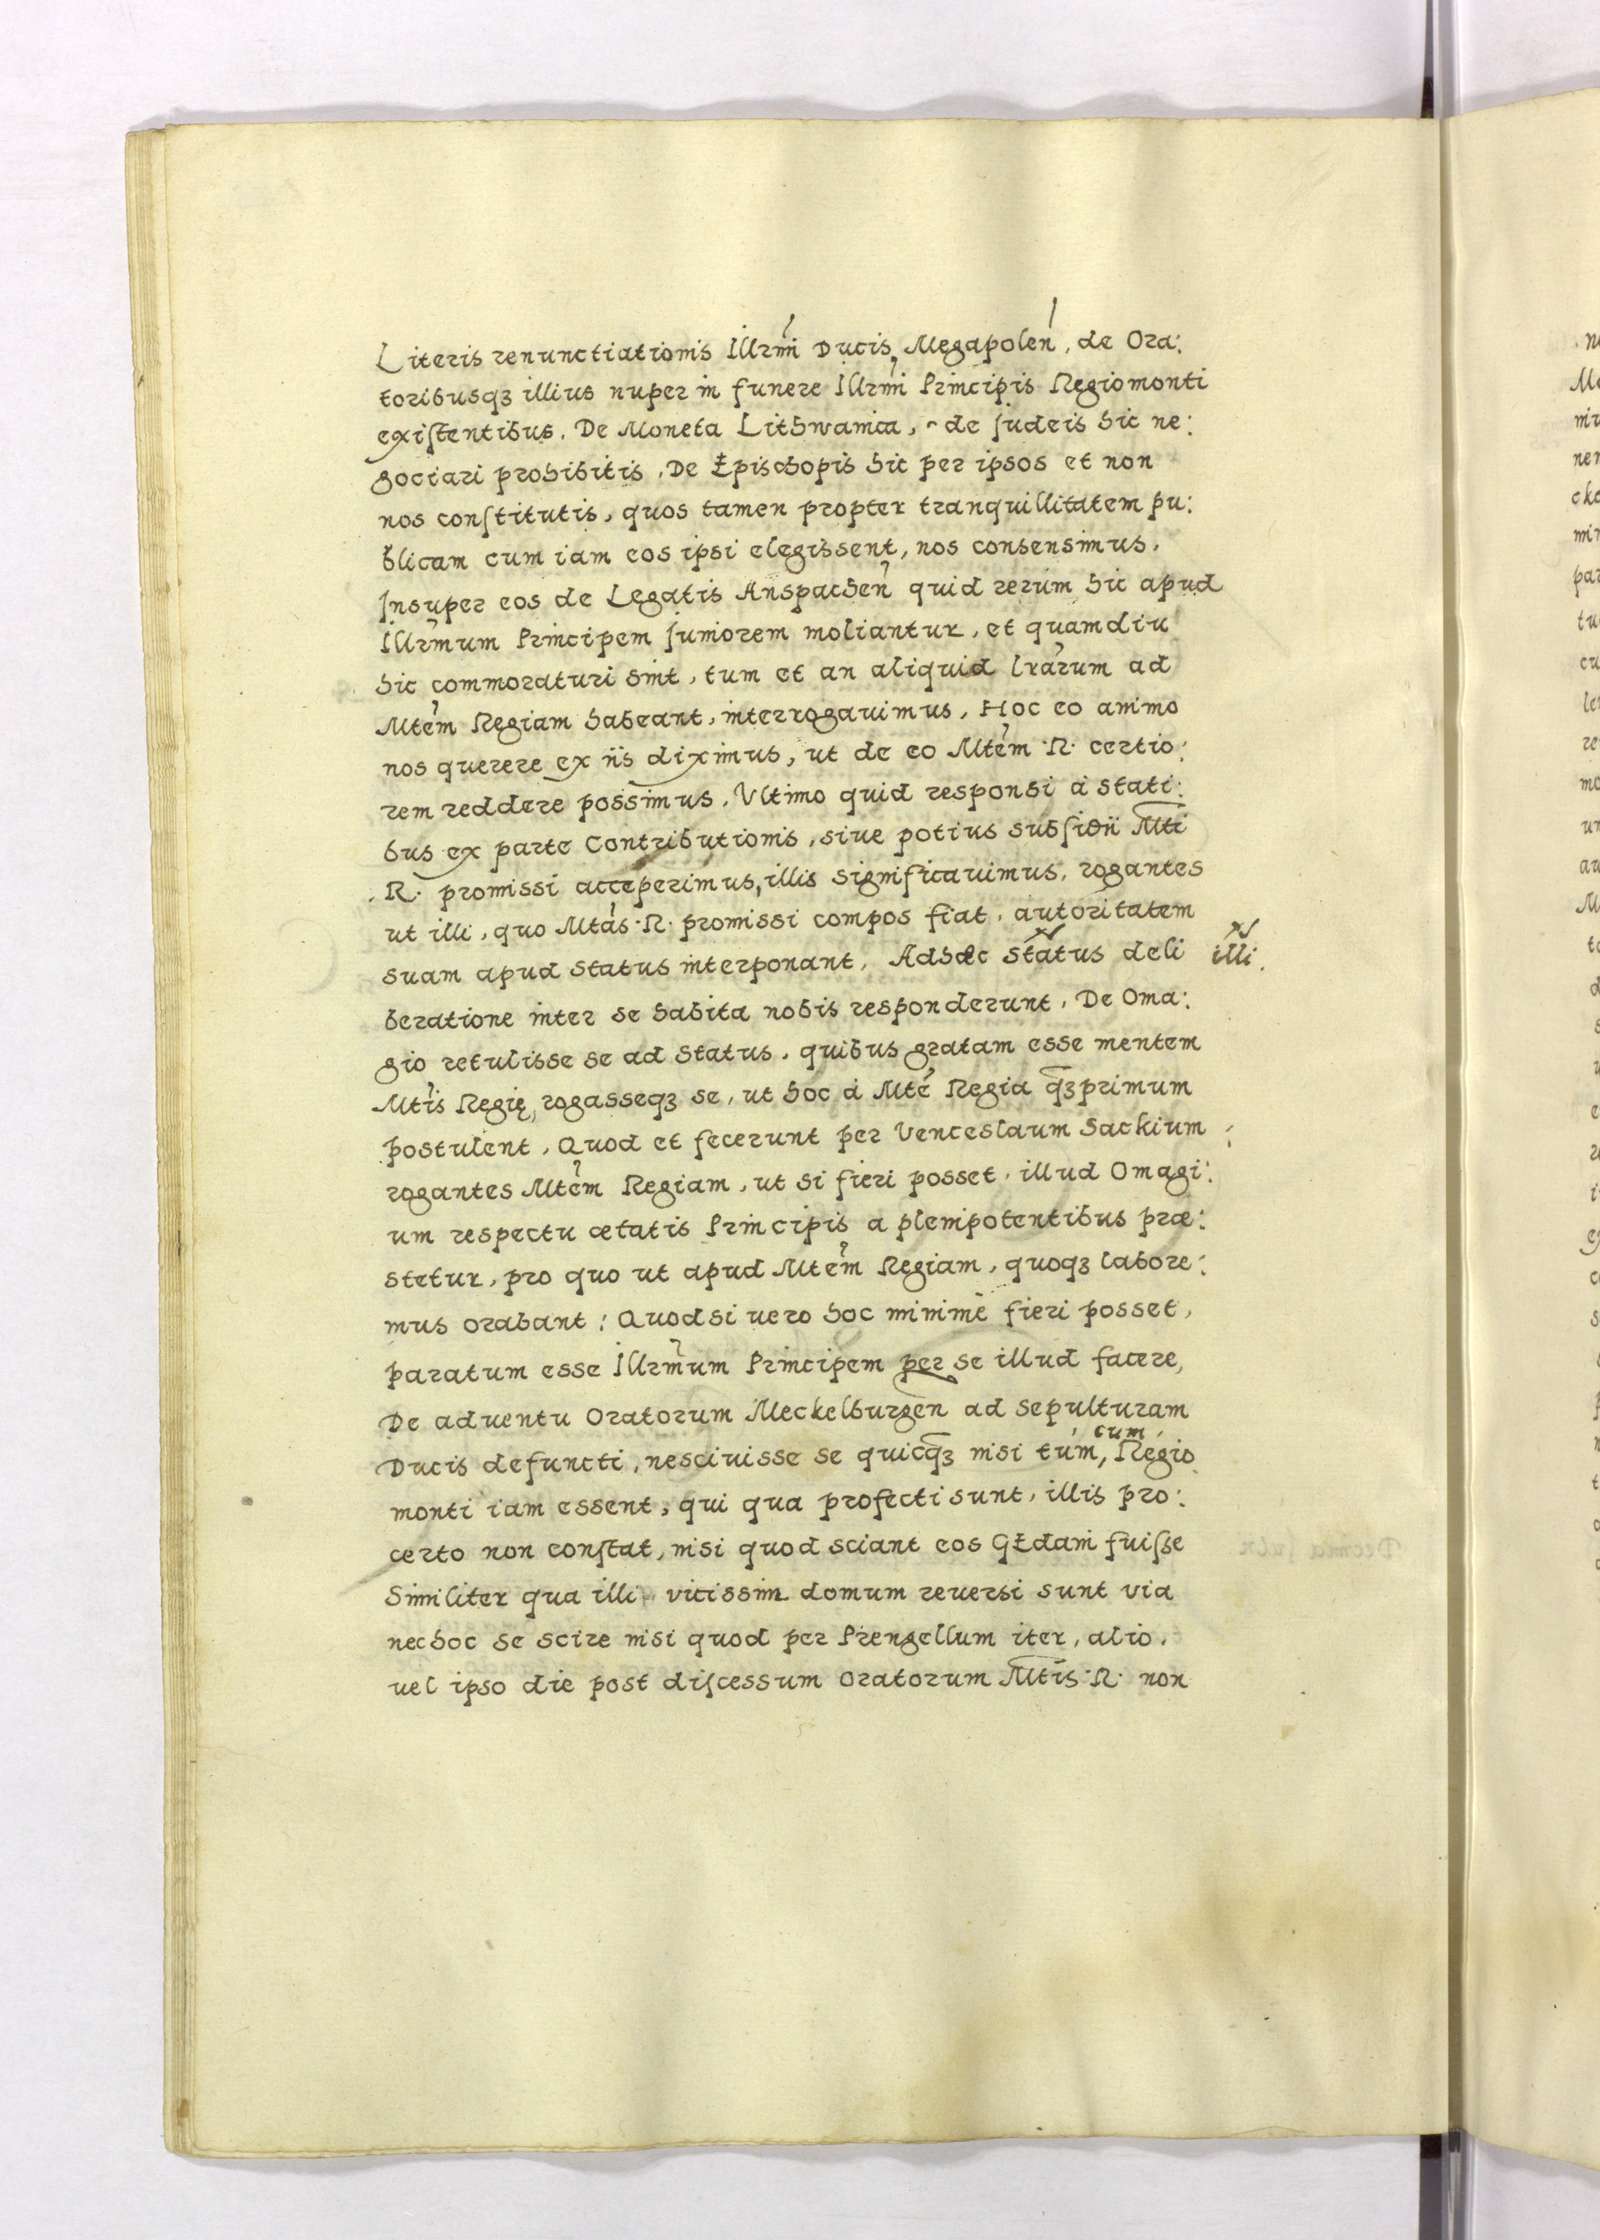 Literis renunctiationis Illrmi Ducis Megapolen, de Ora:
toribusqꝫ illius nuper in funere Illrmi Principis Regiomonti
exiſtentibus. De Moneta Lithwanica, de Judeis hic ne:
gociari prohibitis. De Epischopis hic per ipsos et non
nos conſtitutis, quos tamen propter tranquillitatem pu:
blicam cum iam eos ipsi elegissent, nos consensimus.
Insuper eos de Legatis Anspachen quid rerum hic apud
Illrmum Principem Juniorem moliantur, et quamdiu
hic commoraturi sint, tum et an aliquid lrarum ad
Mtem Regiam habeant, interrogauimus, Hoc eo animo
nos querere ex iis diximus, ut de eo Mtem R. certio:
rem reddere possimus. Ultimo quid responsi à stati:
bus ex parte Contributionis, siue potius subſidii Mti
R. promissi acceperimus, illis significauimus, rogantes
ut illi, quo Mtas R. promissi compos fiat, autoritatem
suam apud status interponant, Adhæc status deli illi.
beratione inter se habita nobis responderunt, De Oma:
gio retulisse se ad status, quibus gratam esse mentem
Mtis Regię, rogasseqꝫ se, ut hoc à Mte Regia qꝫprimum
postulent, Quod et fecerunt per Venceslaum Sackium
rogantes Mtem Regiam, ut si fieri posset, illud Omagi:
um respectu ætatis Principis a plenipotentibus præ:
stetur, pro quo ut apud Mtem Regiam, quoqꝫ labore:
mus orabant: Quodsi uero hoc minimè fieri posset,
paratum esse Illrmum Principem per se illud facere,
De aduentu Oratorum Meckelburgen ad sepulturam
Ducis defuncti, nesciuisse se quicqꝫ nisi tùm, cum Regio
monti iam essent, qui qua profecti sunt, illis pro:
certo non conſtat, nisi quod sciant eos GEdani fuiſse
Similiter qua illi vicissim domum reuersi sunt via
nec hoc se scire nisi quod per Prengellum iter, alio,
uel ipso die post diſcessum Oratorum Mtis R. non